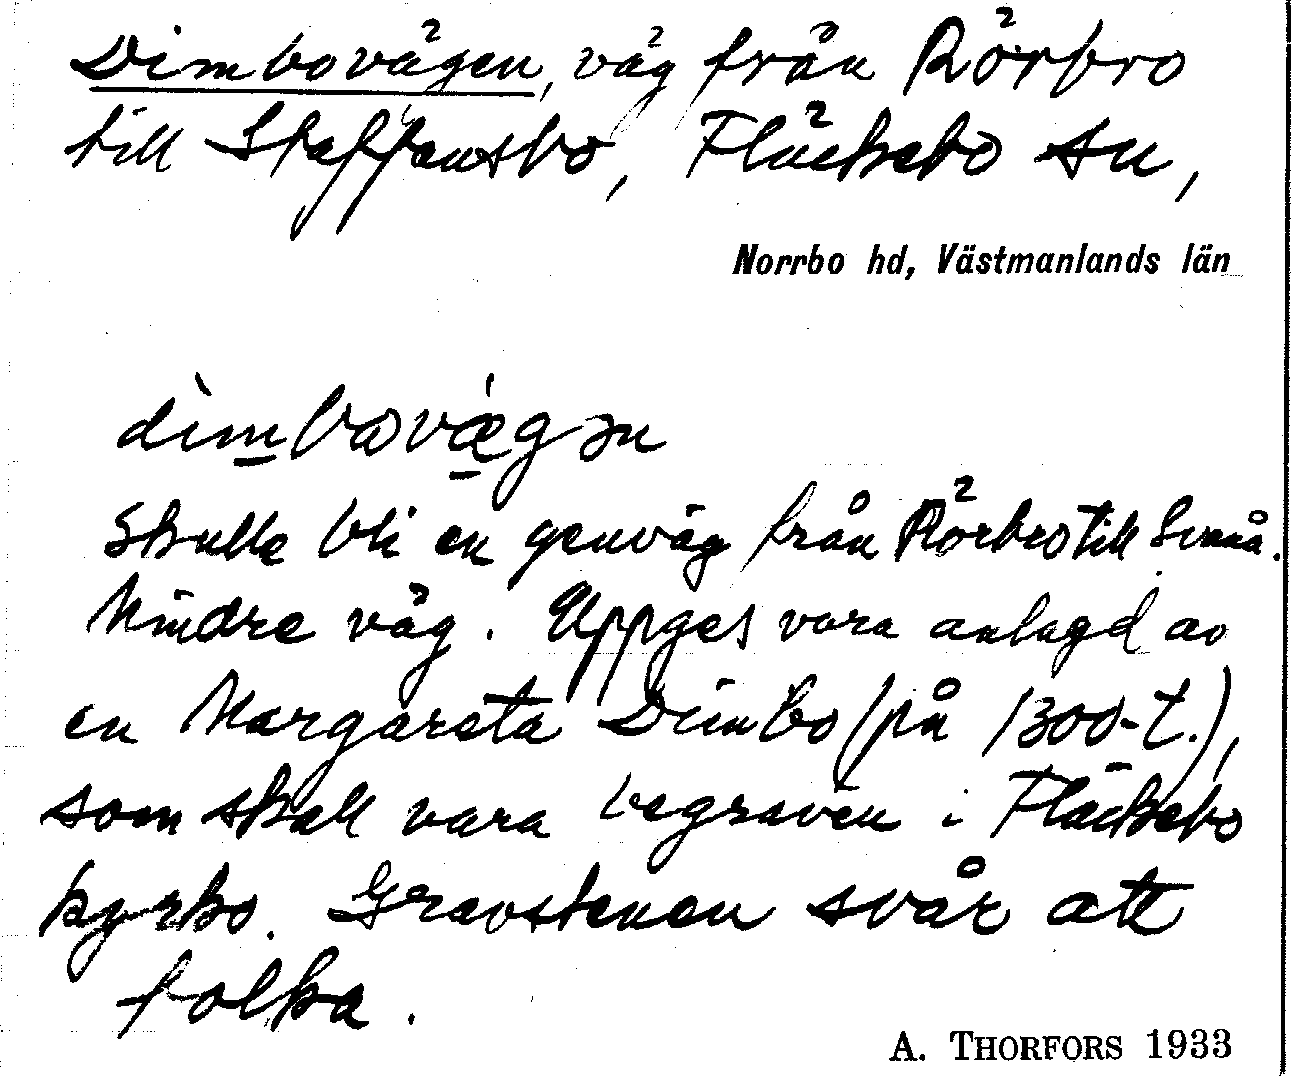 Dimbovägen, väg från Rörbro
till Staffansbo, Fläckebo sn,
Norrbo hd, Västmanlands län
dìmbovǽgən
Skulle bli en genväg från Rörbro till Svanå.
Mindre väg. Uppges vara anlagd av
en Margareta Dimbo (på 1300-t.),
som skall vara begraven i Fläckebo
kyrka. Gravstenen svår att
tolka.
A. THORFORS 1933